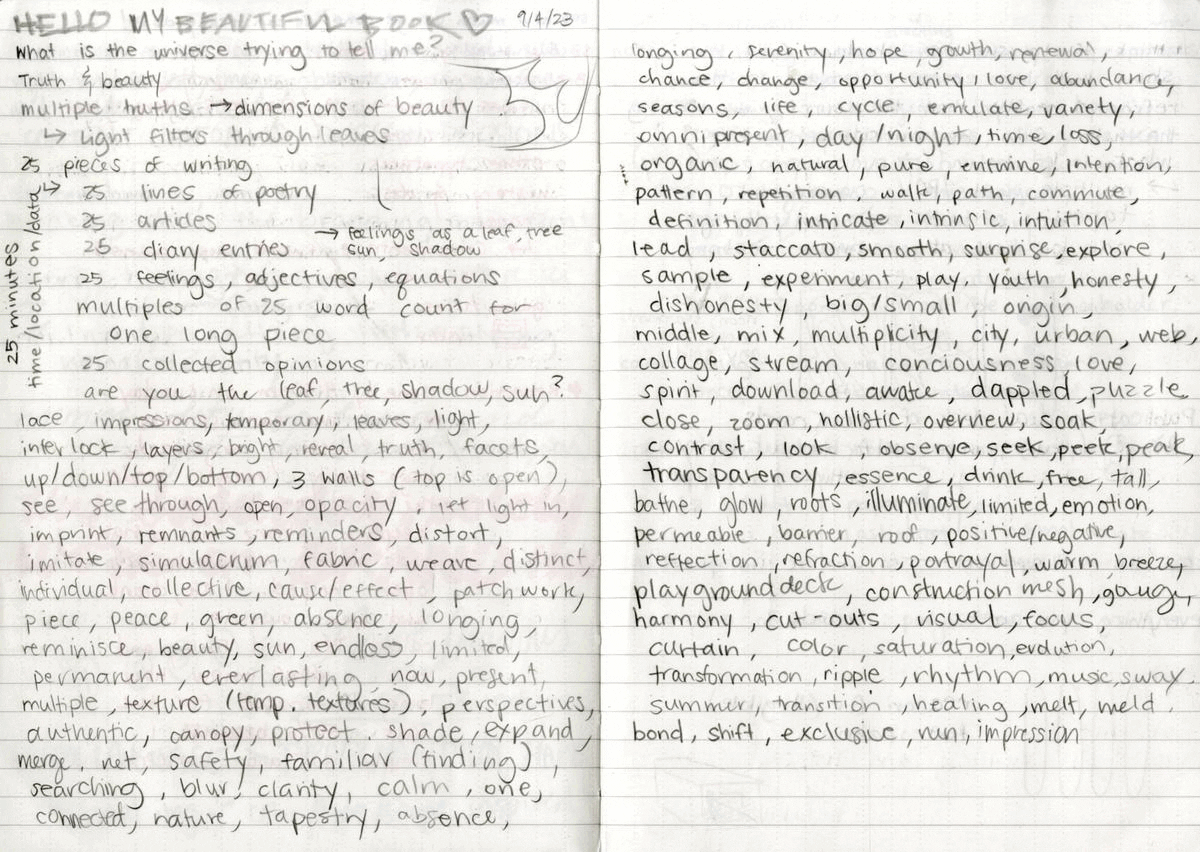 HELLO MY BEAUTIFUL BOOK ♡ 9/4/23
What is the universe trying to tell me?
Truth & beauty
multiple truths → dimensions of beauty
↳ light filters through leaves
25 pieces of writing
25 lines of poetry
25 articles
25 diary entries → feelings as a leaf, tree
sun, shadow
25 feelings, adjectives, equations
multiples of 25 word count for
one long piece
25 collected opinions
25 minutes
time/location/data
are you the leaf, tree, shadow, sun?
lace, impressions, temporary, leaves, light,
interlock, layers, bright, reveal, truth, facets,
up/down/top/bottom, 3 walls (top is open),
see, see through, open, opacity, let light in,
imprint, remnants, reminders, distort,
imitate, simulacrum, fabric, weave, distinct,
individual, collective, cause/effect, patchwork,
piece, peace, green, absence, longing,
reminisce, beauty, sun, endless, limited,
permanunt, everlasting, now, present,
multiple, texture (temp. textures), perspectives,
authentic, canopy, protect, shade, expand,
merge, net, safety, familiar (finding),
searching, blur, clarity, calm, one,
connected, nature, tapestry, absence,
longing, serenity, hope, growth, renewal,
chance, change, opportunity, love, abundance,
seasons, life, cycle, emulate, variety,
omnipresent, day/night, time, loss,
organic, natural, pure, entwine, intention,
pattern, repetition, walk, path, commute,
definition, intricate, intrinsic, intuition,
lead, staccato, smooth, surprise, explore,
sample, experiment, play, youth, honesty,
dishonesty, big/small, origin,
middle, mix, multiplicity, city, urban, web,
collage, stream, conciousness, love,
spirit, download, awake, dappled, puzzle
close, zoom, hollistic, overview, soak,
contrast, look, observe, seek, peek, peak,
transparency, essence, drink, free, tall,
bathe, glow, roots, illuminate, limited, emotion,
permeable, barrier, roof, positive/negative,
reflection, refraction, portrayal, warm, breeze,
playground deck, construction mesh, gauge,
harmony, cut-outs, visual, focus,
curtain, color, saturation, evolution,
transformation, ripple, rhythm, music, sway.
summer, transition, healing, melt, meld.
bond, shift, exclusive, run, impression